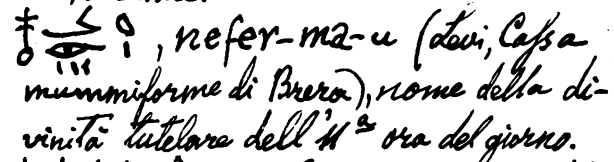 , nefer-ma-u (Levi, Cassa
mummiforme di Brera), nome della di-
vinità tutelare dell'11ª ora del giorno.